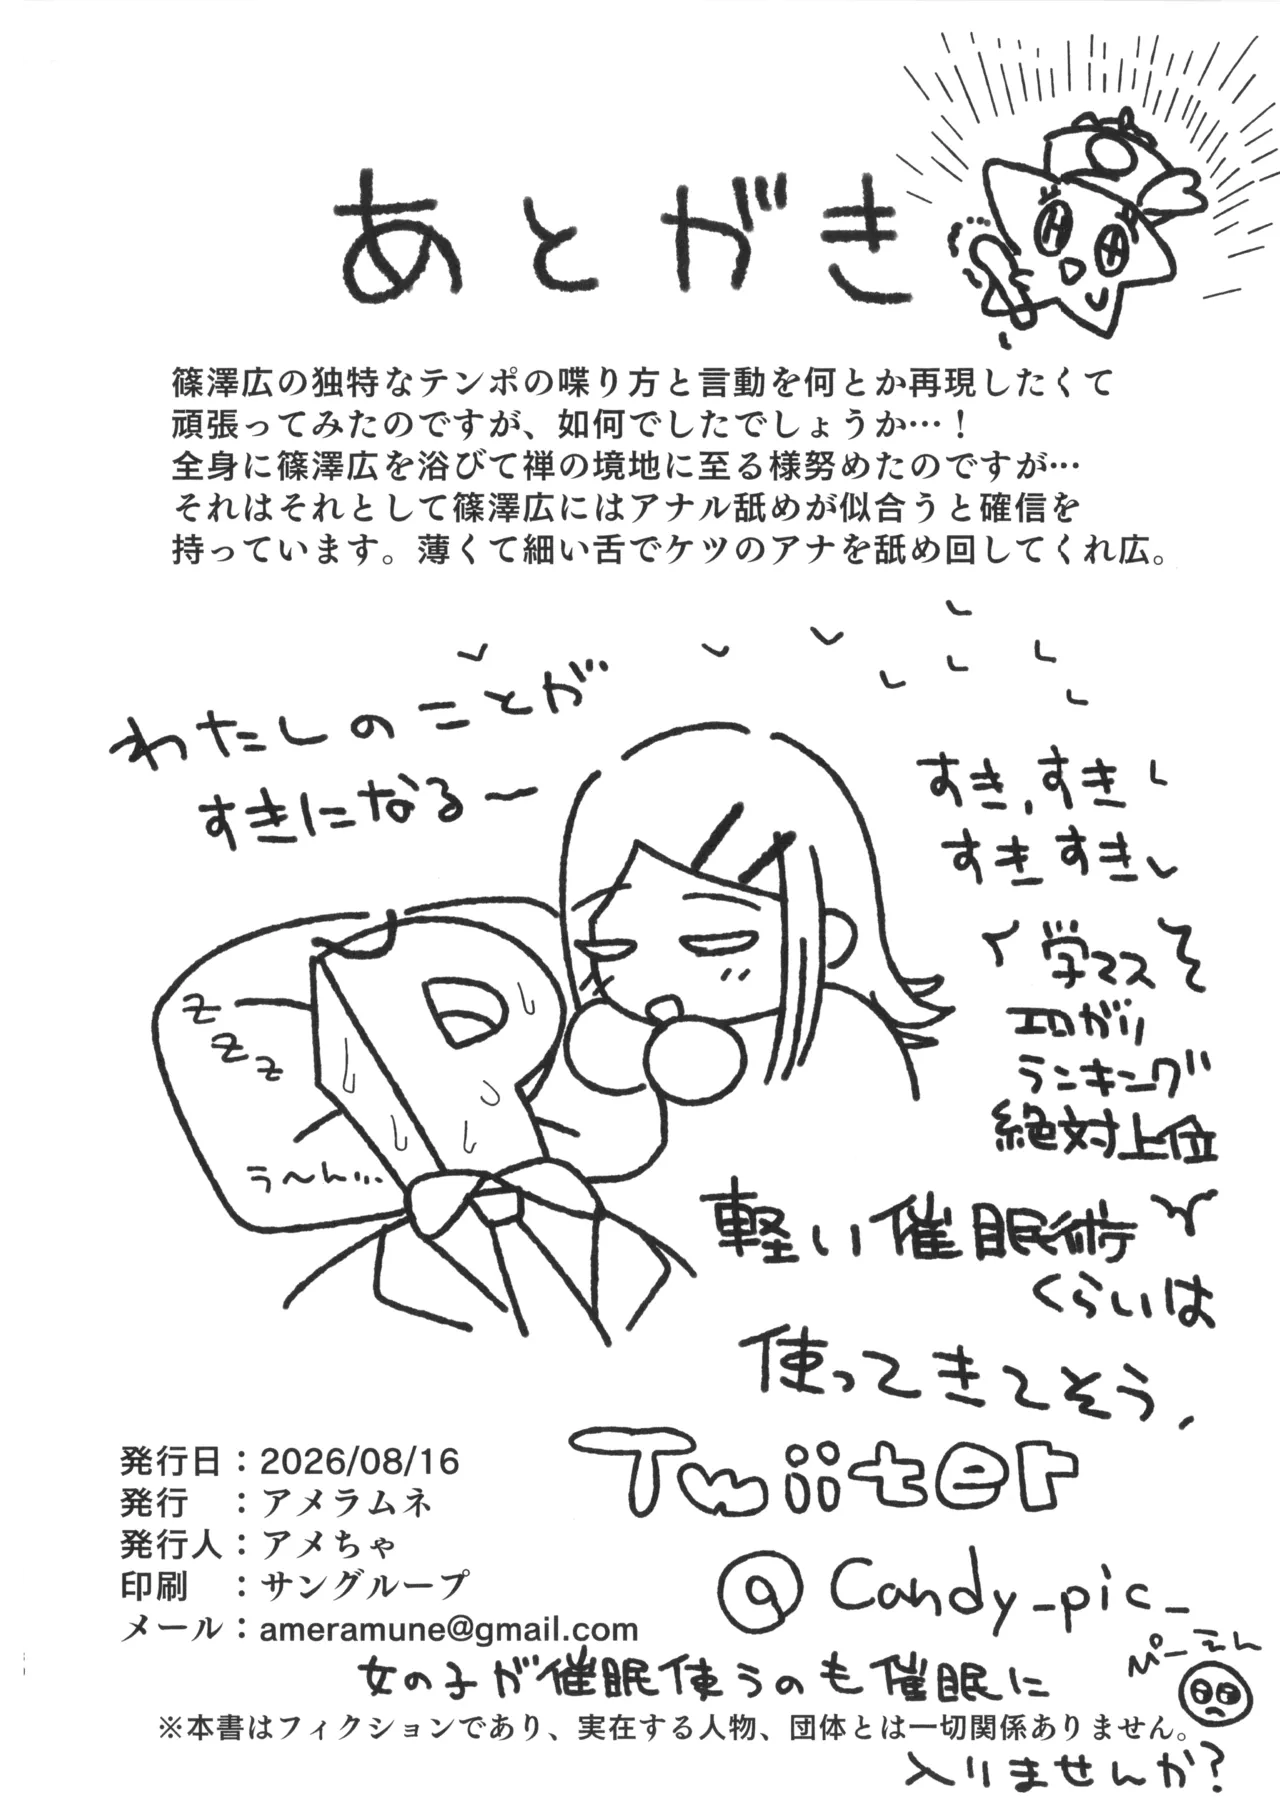 あとがき
篠澤広の独特なテンポの喋り方と言動を何とか再現したくて
頑張ってみたのですが、如何でしたでしょうか…！
全身に篠澤広を浴びて禅の境地に至る様努めたのですが…
それはそれとして篠澤広にはアナル舐めが似合うと確信を
持っています。薄くて細い舌でケツのアナを舐め回してくれ広。
わたしのことが
すきになる〜
すき、すき
すきすき
学マス
エロがり
ランキング
絶対上位
z
z
z
P
う〜ん…
軽い催眠術
くらいは
使ってきてそう、
Twiiter
@Candy_pic_
発行日：2026/08/16
発行　：アメラムネ
発行人：アメちゃ
印刷　：サングループ
メール：ameramune@gmail.com
ぴーえん
女の子が催眠使うのも催眠に
※本書はフィクションであり、実在する人物、団体とは一切関係ありません。
入りませんか？